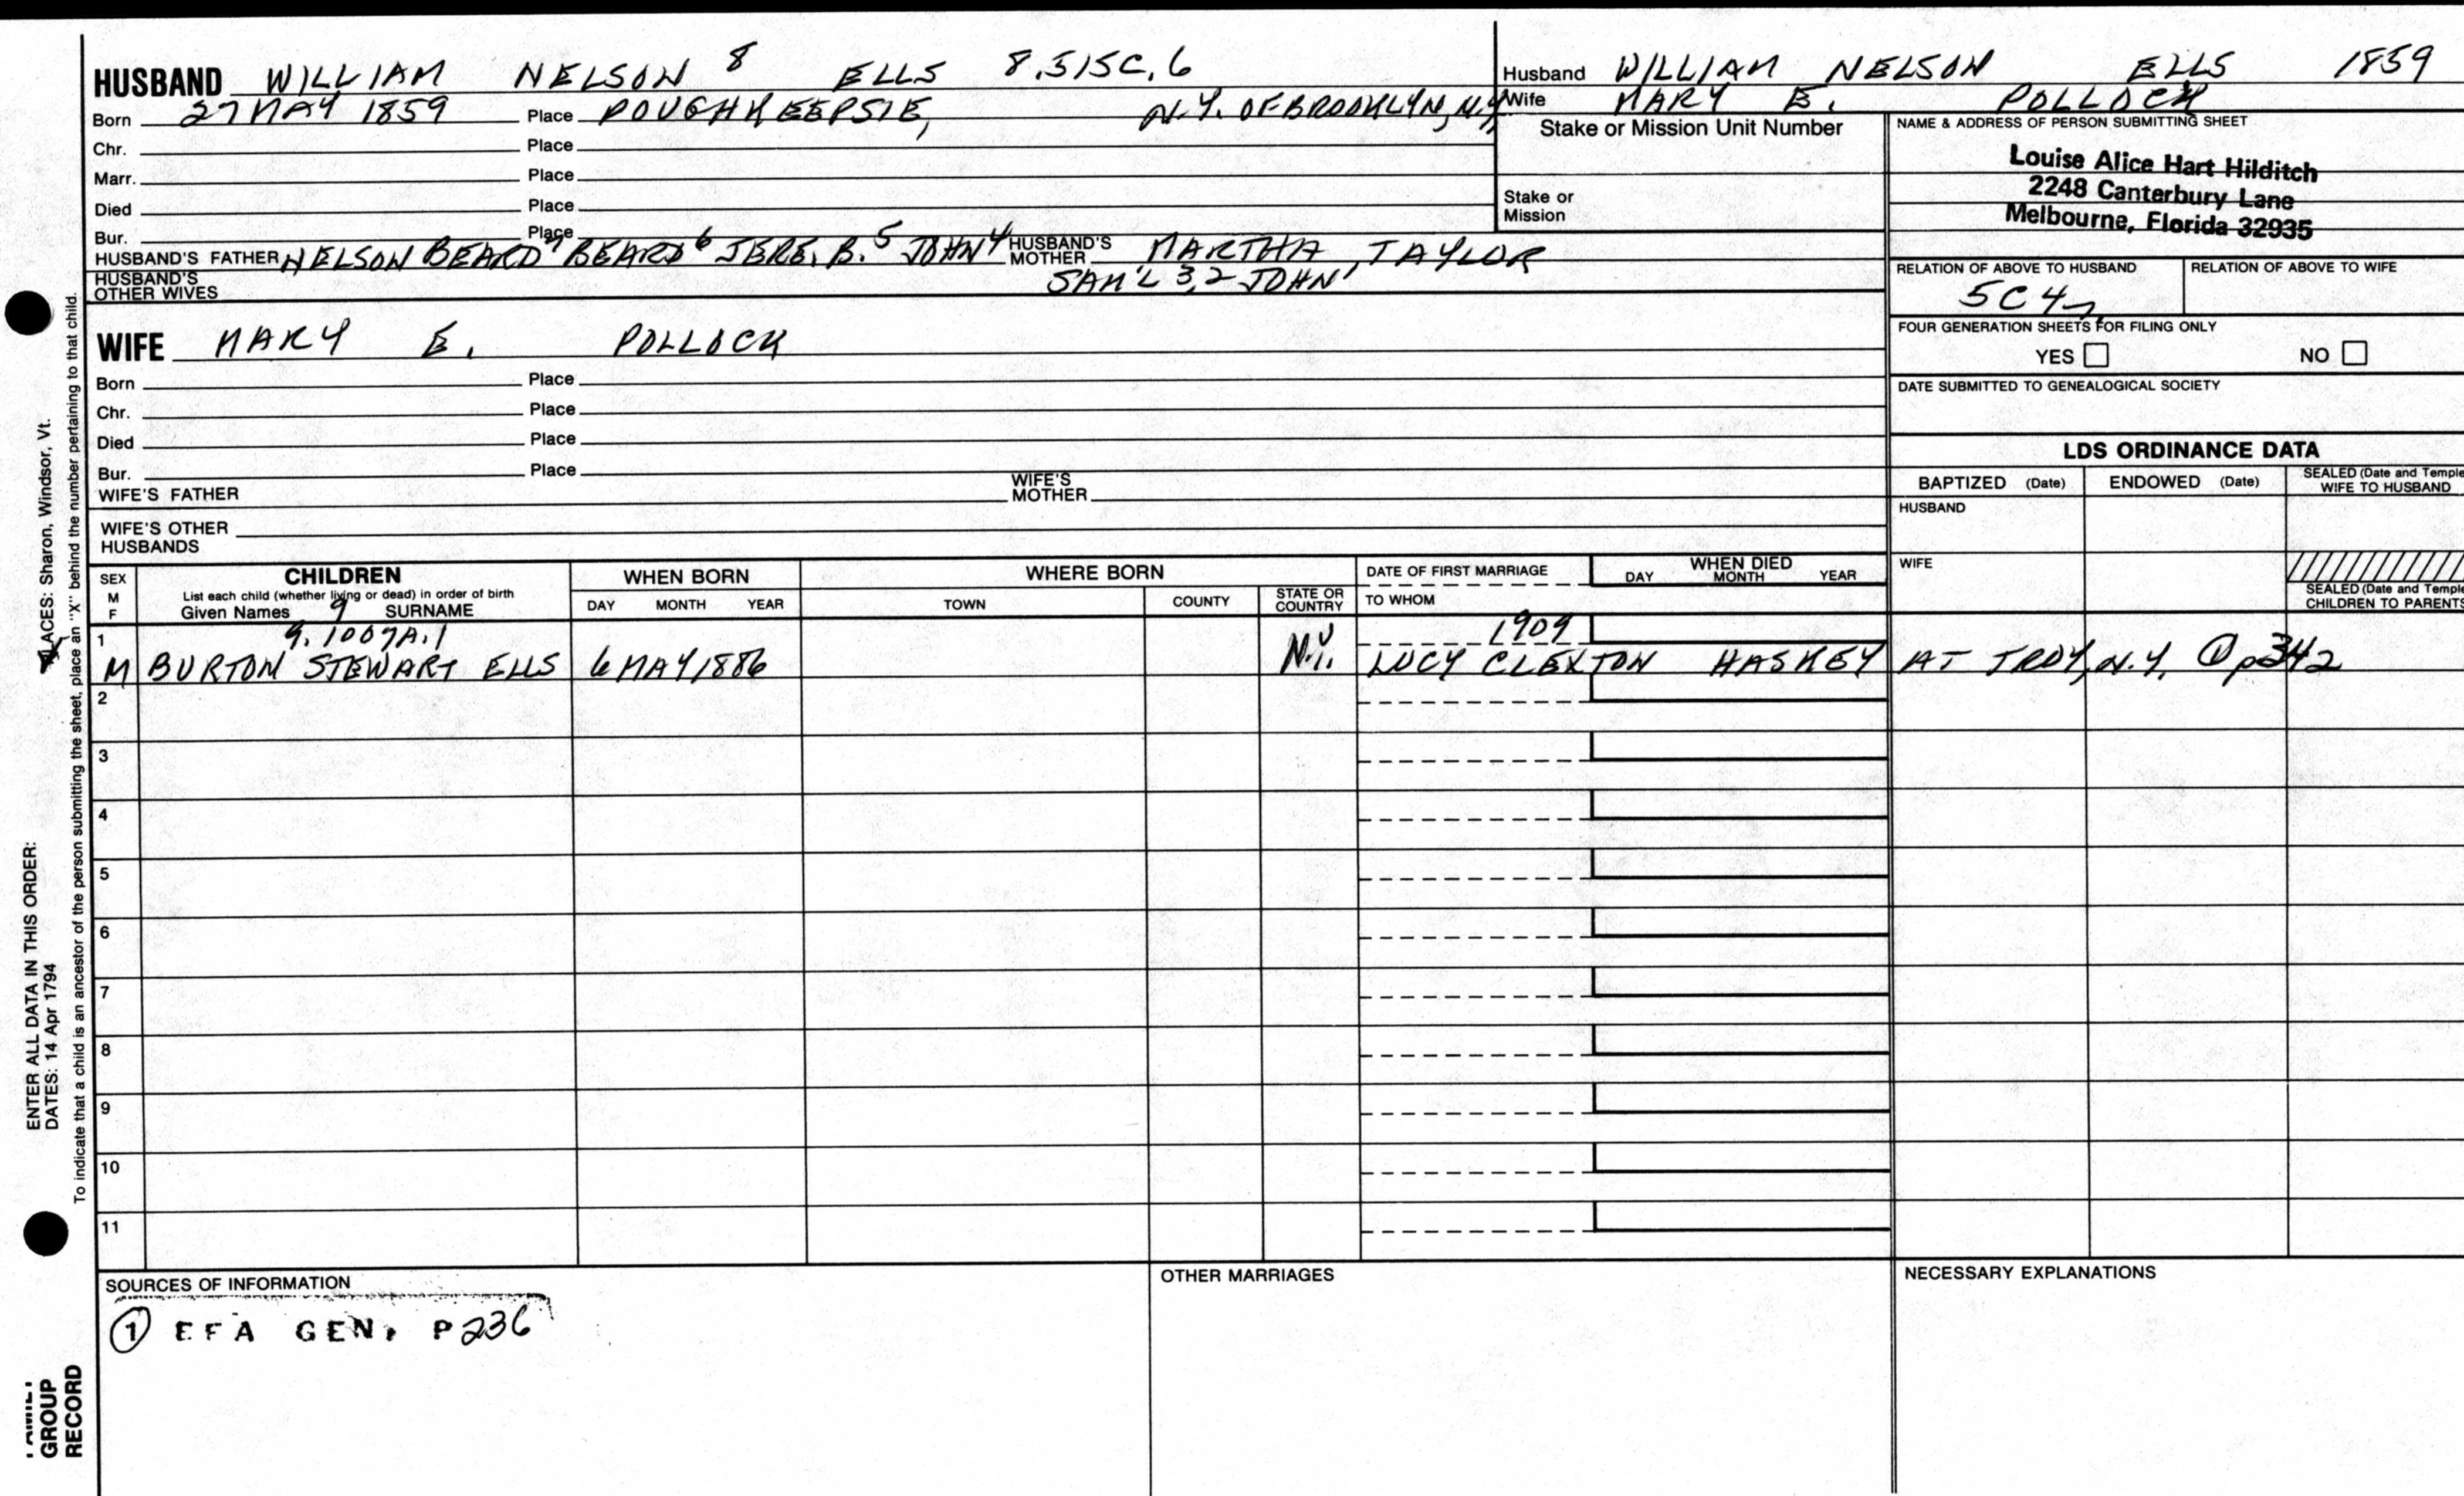 HUSBAND WILLIAM NELSON 8 ELLS 8.515C.6
Born 27 MAY 1859 Place POUGHKEEPSIE, N.Y. OF BROOKLYN, N.Y.
Chr. Place
Marr. Place
Died Place
Bur. Place
HUSBAND'S FATHER NELSON BEARD 7 BEARD 6 JERE. B. 5 JOHN 4 HUSBAND'S MOTHER MARTHA TAYLOR
SAM'L 3,2 JOHN 1
HUSBAND'S OTHER WIVES
Husband WILLIAM NELSON ELLS 1859
Wife MARY E. POLLOCK
Stake or Mission Unit Number
Stake or Mission
NAME & ADDRESS OF PERSON SUBMITTING SHEET
Louise Alice Hart Hilditch
2248 Canterbury Lane
Melbourne, Florida 32935
RELATION OF ABOVE TO HUSBAND RELATION OF ABOVE TO WIFE
5C4
FOUR GENERATION SHEETS FOR FILING ONLY
YES NO
DATE SUBMITTED TO GENEALOGICAL SOCIETY
WIFE MARY E. POLLOCK
Born Place
Chr. Place
Died Place
Bur. Place
WIFE'S FATHER WIFE'S MOTHER
WIFE'S OTHER HUSBANDS
LDS ORDINANCE DATA
BAPTIZED (Date) ENDOWED (Date) SEALED (Date and Temple
WIFE TO HUSBAND
HUSBAND
WIFE
SEALED (Date and Temple
CHILDREN TO PARENTS
SEX M F
CHILDREN
List each child (whether living or dead) in order of birth
Given Names 9 SURNAME
WHEN BORN
DAY MONTH YEAR
WHERE BORN
TOWN COUNTY STATE OR COUNTRY
DATE OF FIRST MARRIAGE
TO WHOM
WHEN DIED
DAY MONTH YEAR
1 9.1007A.1 1909
M BURTON STEWART ELLS 6 MAY 1886 N.Y. LUCY CLEXTON HASKEY AT TROY, N.Y. ① p342
2
3
4
5
6
7
8
9
10
11
SOURCES OF INFORMATION
① EFA GEN, P236
OTHER MARRIAGES
NECESSARY EXPLANATIONS
ENTER ALL DATA IN THIS ORDER:
DATES: 14 Apr 1794
PLACES: Sharon, Windsor, Vt.
To indicate that a child is an ancestor of the person submitting the sheet, place an "X" behind the number pertaining to that child.
FAMILY
GROUP
RECORD